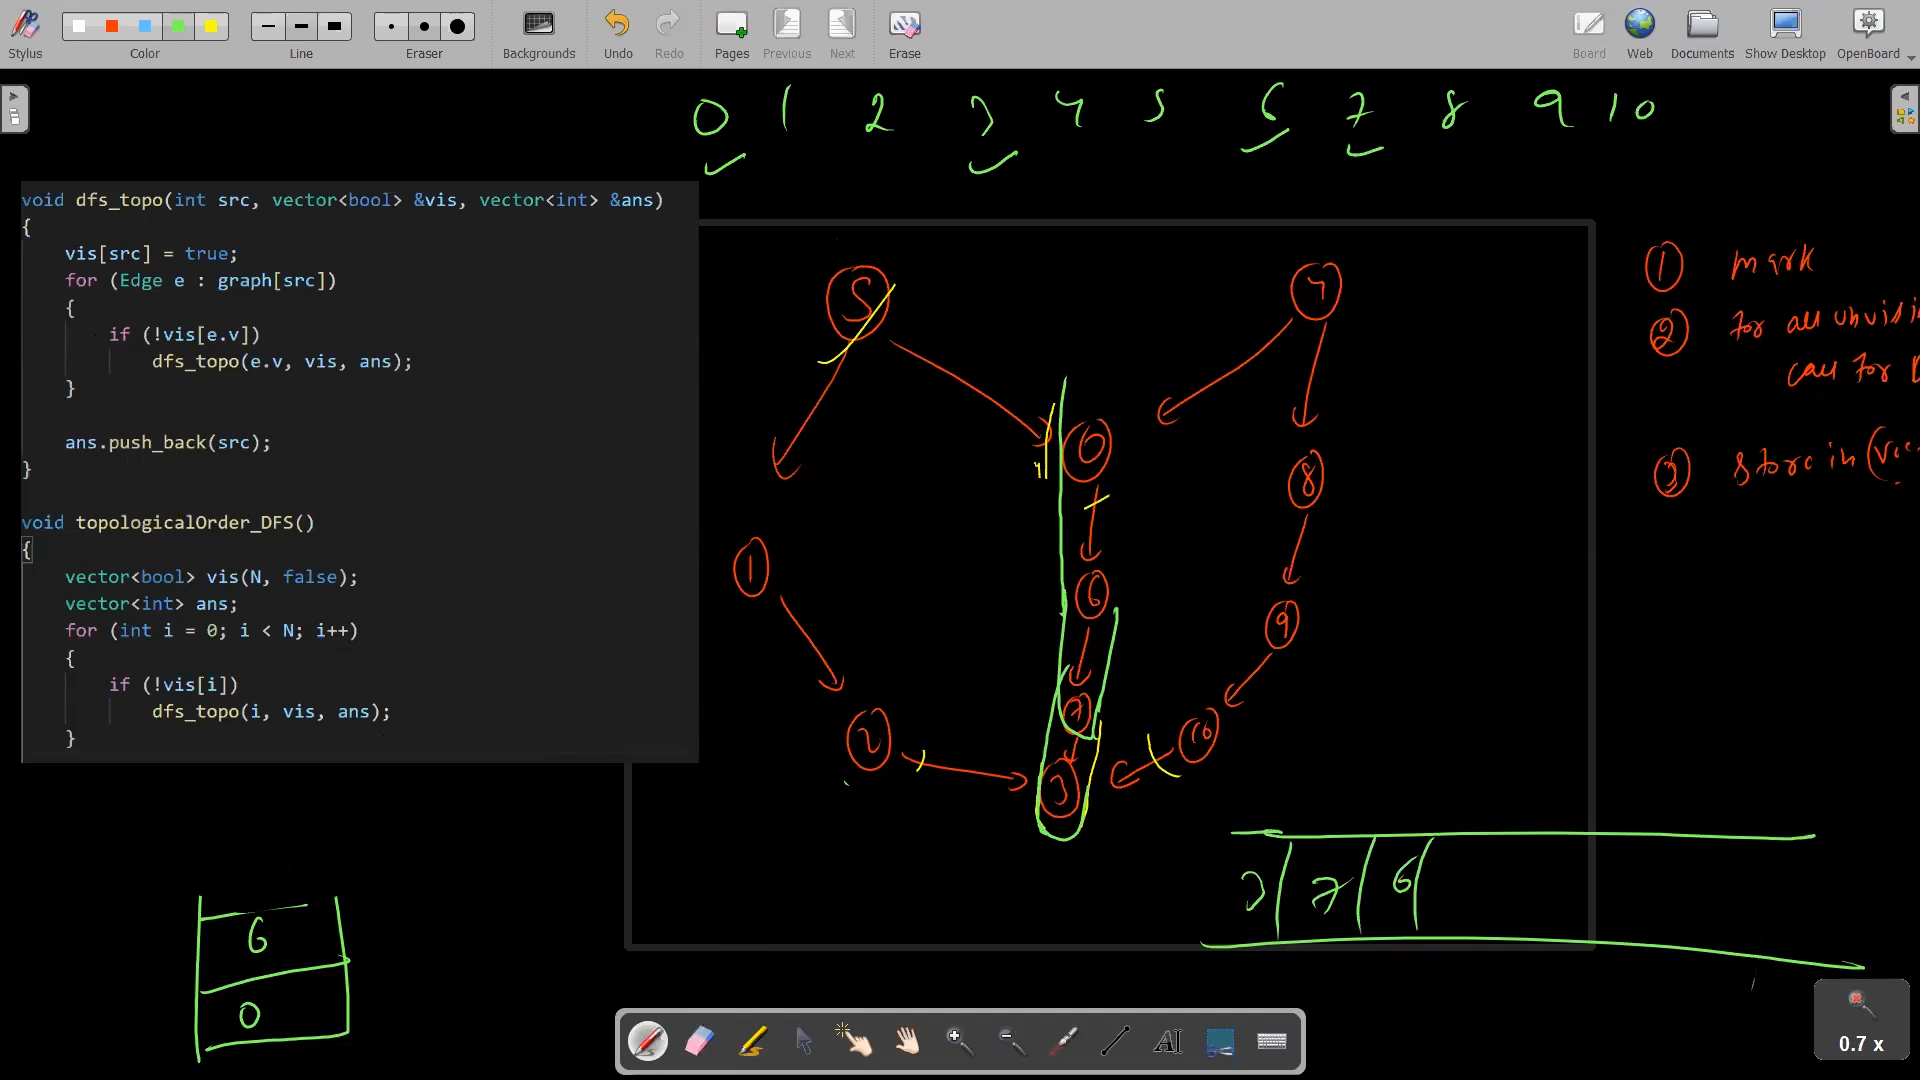 Stylus Color Line Eraser Backgrounds Undo Redo Pages Previous Next Erase Board Web Documents Show Desktop OpenBoard
0 1 2 3 4 5 6 7 8 9 10
void dfs_topo(int src, vector<bool> &vis, vector<int> &ans)
{
vis[src] = true;
for (Edge e : graph[src])
{
if (!vis[e.v])
dfs_topo(e.v, vis, ans);
}
ans.push_back(src);
}
void topologicalOrder_DFS()
{
vector<bool> vis(N, false);
vector<int> ans;
for (int i = 0; i < N; i++)
{
if (!vis[i])
dfs_topo(i, vis, ans);
}
5 4
0 8
1 6 9
7
2 3 10
1 mark
2 for all unvisi
call for
3 store in (vec
3 7 6
6
0
0.7 x